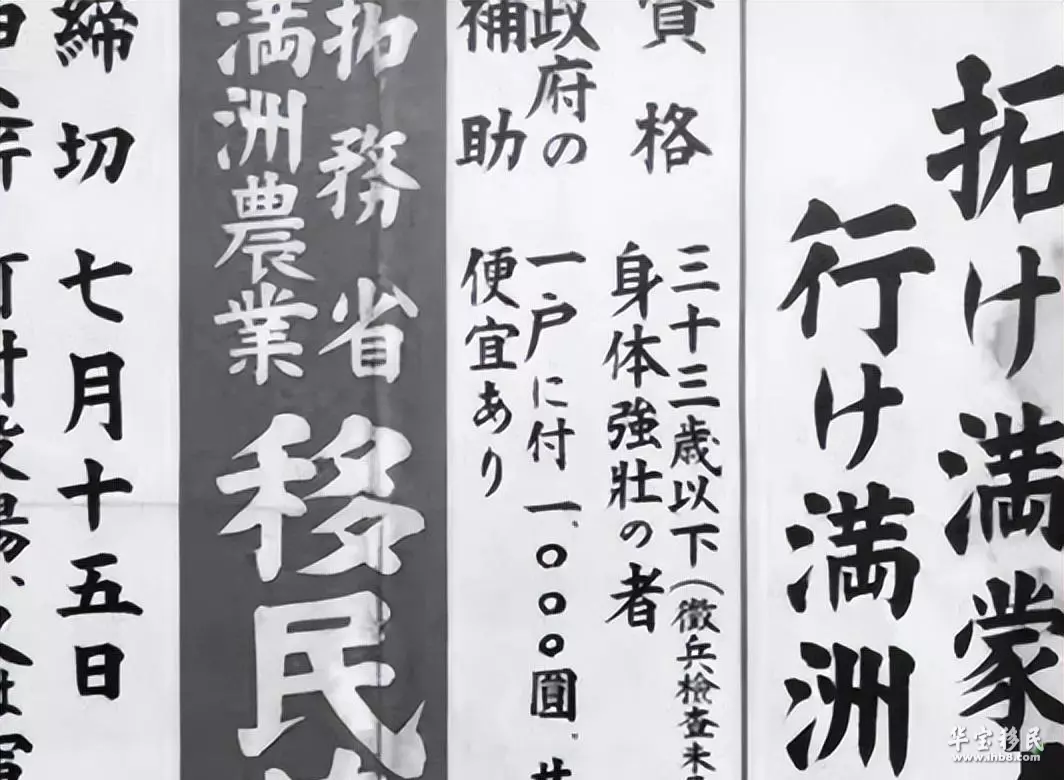 拓け満蒙
行け満洲
資格
三十三歳以下（徴兵檢査未
身体強壯の者
政府の
補助
一戸に付一、〇〇〇圓、
便宜あり
拓務省
満洲農業
移民
締切 七月十五日
华宝移民
www.ihb8.com